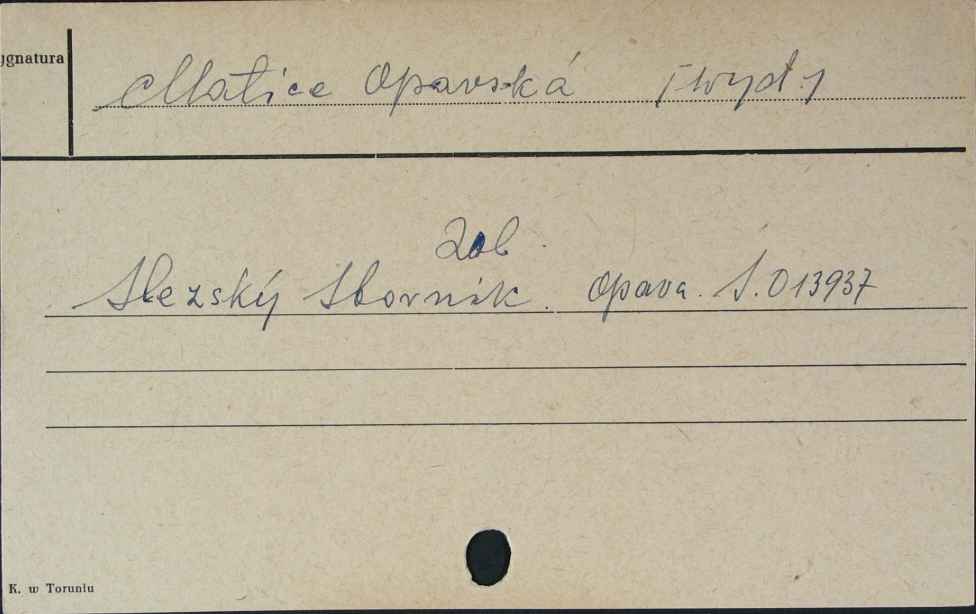 ygnatura
Matice Opavská [wyd.]
Zob.
Slezský Sborník. Opava. S. 013937
K. w Toruniu